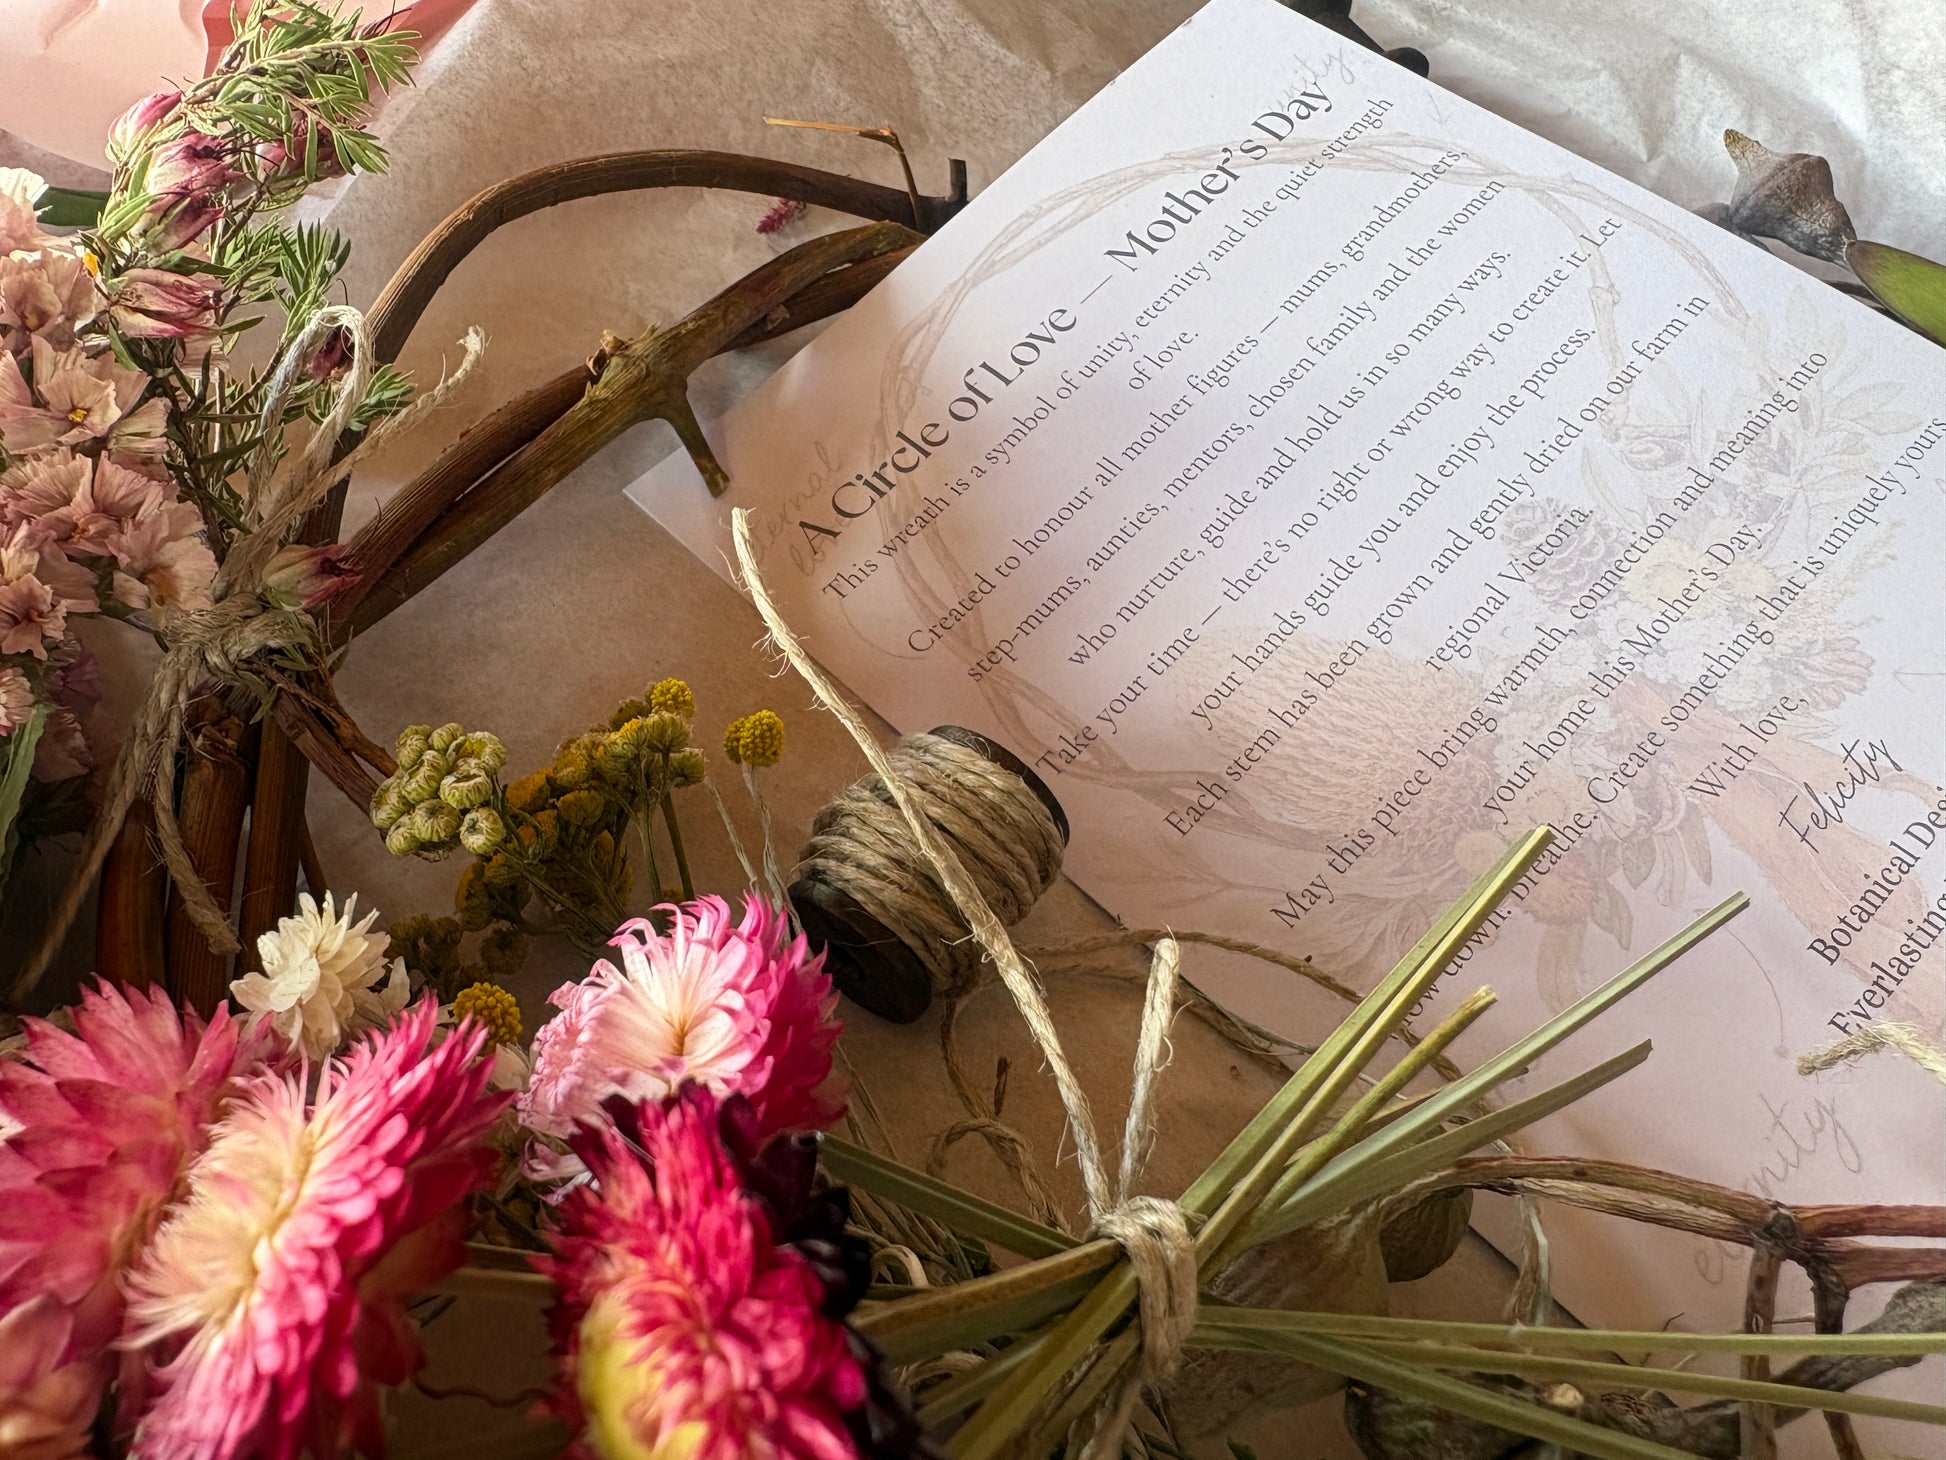 A Circle of Love — Mother's Day
This wreath is a symbol of unity, eternity and the quiet strength
of love.
Created to honour all mother figures — mums, grandmothers,
step-mums, aunties, mentors, chosen family and the women
who nurture, guide and hold us in so many ways.
Take your time — there's no right or wrong way to create it. Let
your hands guide you and enjoy the process.
Each stem has been grown and gently dried on our farm in
regional Victoria.
May this piece bring warmth, connection and meaning into
your home this Mother's Day.
down. Breathe. Create something that is uniquely yours
With love,
Felicity
Botanical Desi
Everlasting
unity
eternal
eternity